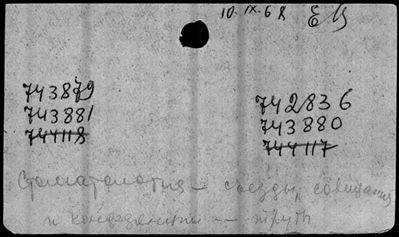 10.IX.68 ЕВ
743879
743881
744118
742836
743880
744117
Стоматология – съезды, совещания
и конференции – труды